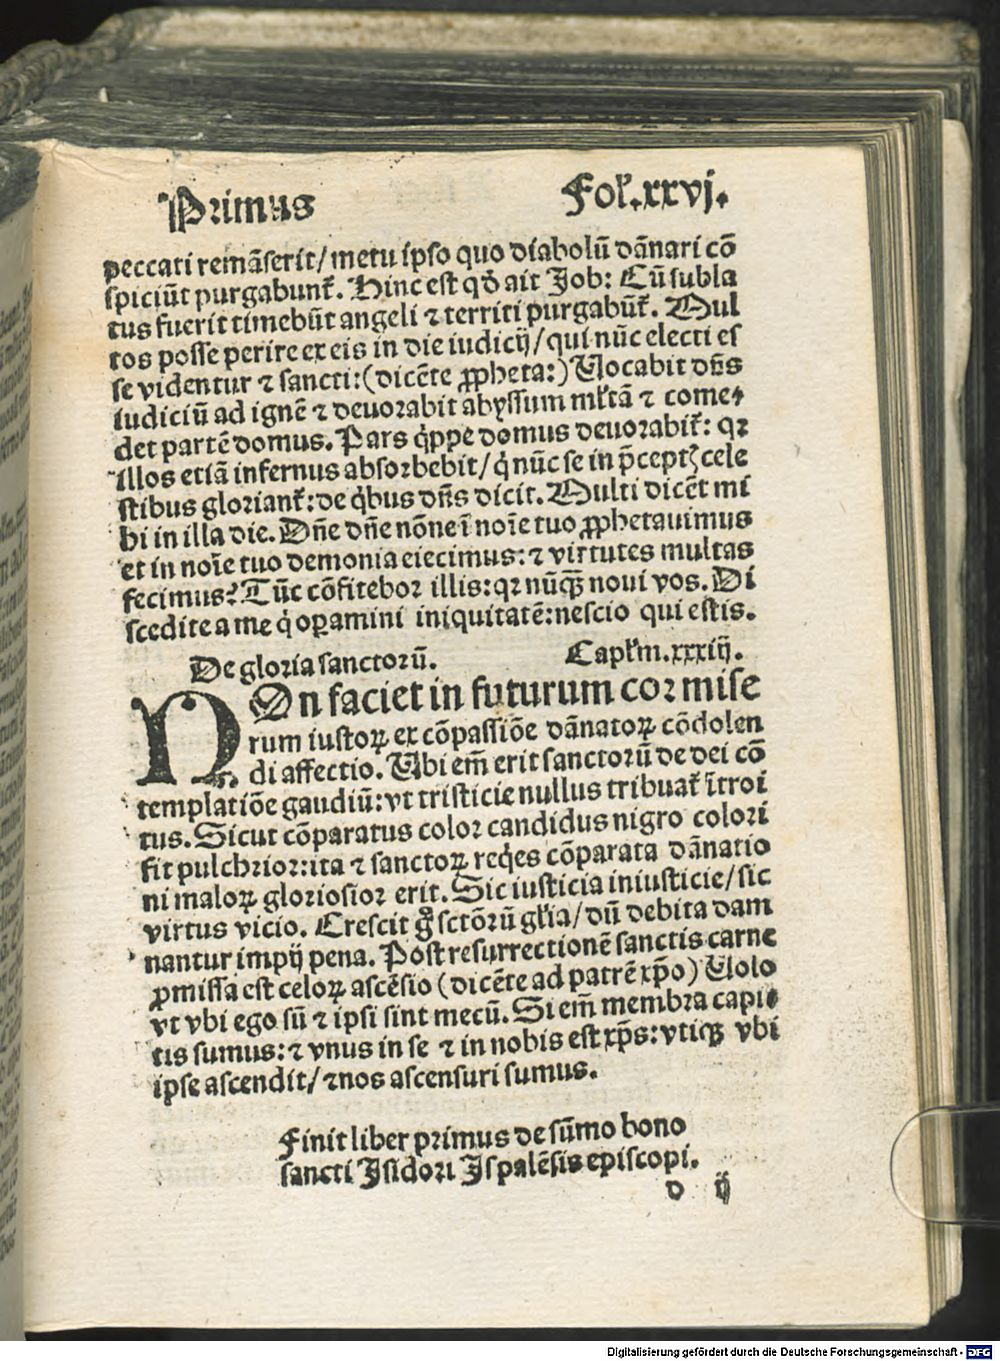 Primus Fol'.xxvj.
peccati remãserit/metu ipso quo diabolũ dãnari cõ
spiciũt purgabunt᷑. Hinc est qď ait Job: Cũ subla
tus fuerit timebũt angeli ⁊ territi purgabũt᷑. Mul
tos posse perire ex eis in die iudicij/qui nũc electi es
se videntur ⁊ sancti:(dicẽte ꝓpheta:) Vocabit dñs
iudiciũ ad ignẽ ⁊ deuorabit abyssum ml'tã ⁊ come⸗
det partẽ domus. Pars q̇ppe domus deuorabit᷑: qꝛ
illos etiã infernus absorbebit/q̇ nũc se in p̃ceptꝭ cele
stibus gloriant᷑: de q̇bus dñs dicit. Multi dicẽt mi
hi in illa die. Dñe dñe nõne ĩ noĩe tuo ꝓphetauimus
et in noĩe tuo demonia eiecimus: ⁊ virtutes multas
fecimus? Tũc cõfitebor illis: qꝛ nũqꝫ noui vos. Di
scedite a me q̇ oꝑamini iniquitatẽ: nescio qui estis.
De gloria sanctorũ. Capl'm.xxxiij.
NOn faciet in futurum cor mise
rum iustoꝝ ex cõpassiõe dãnatoꝝ cõdolen
di affectio. Vbi em̃ erit sanctorũ de dei cõ
templatiõe gaudiũ: vt tristicie nullus tribuat᷑ ĩtroi
tus. Sicut cõparatus color candidus nigro colori
fit pulchrior: ita ⁊ sanctoꝝ req̇es cõparata dãnatio
ni maloꝝ gloriosior erit. Sic iusticia iniusticie/sic
virtus vicio. Crescit g̊ sctõrũ gl'ia/dũ debita dam
nantur impij pena. Post resurrectionẽ sanctis carne
ꝓmissa est celoꝝ ascẽsio (dicẽte ad patrẽ xp̃o) Volo
vt vbi ego sũ ⁊ ipsi sint mecũ. Si em̃ membra capi⸗
tis sumus: ⁊ vnus in se ⁊ in nobis est xp̃s: vtiqꝫ vbi
ipse ascendit/⁊ nos ascensuri sumus.
Finit liber primus de sũmo bono
sancti Jsidori Jspalẽsis episcopi.
d ij
Digitalisierung gefördert durch die Deutsche Forschungsgemeinschaft - DFG